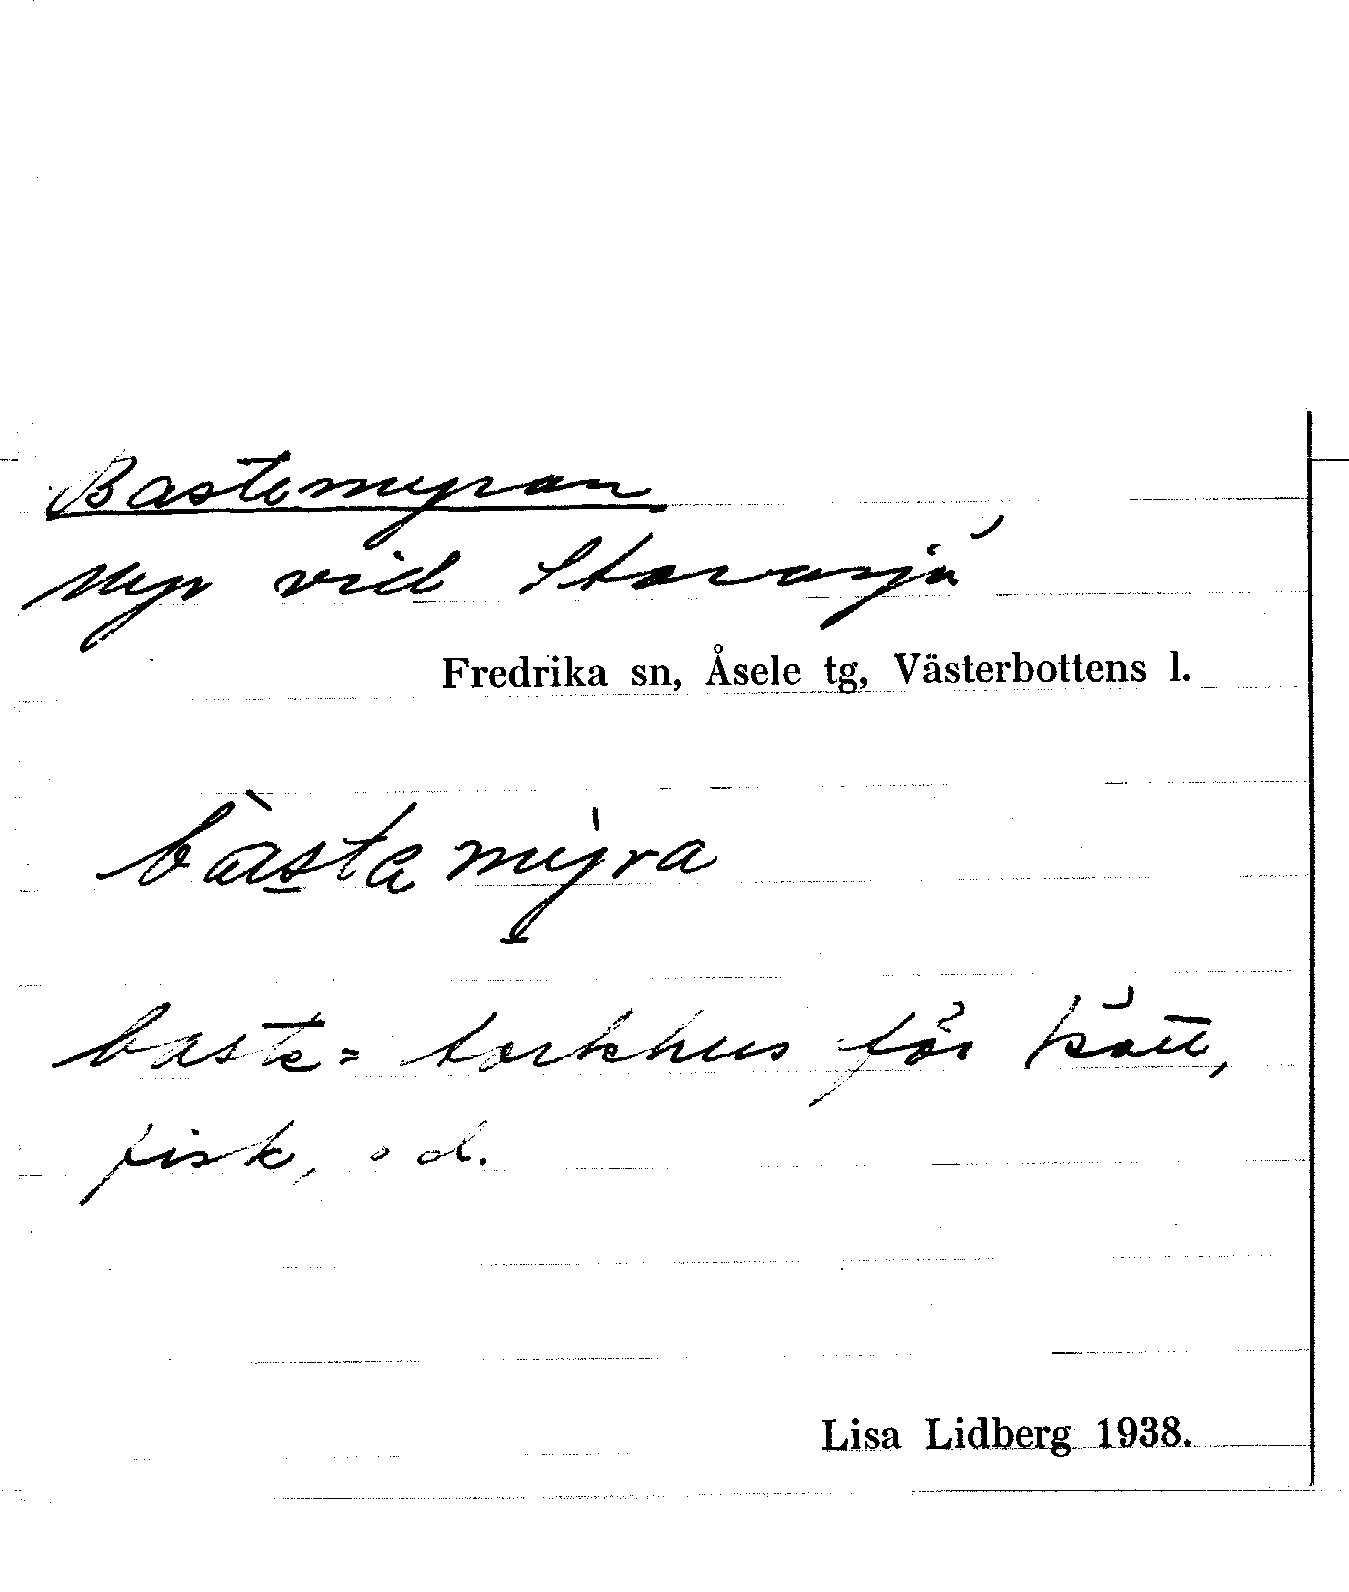 Bastemyran
Myr vid Storarsjö
Fredrika sn, Åsele tg, Västerbottens l.
bàstamýra
baste = torkhus för kött,
fisk, o d.
Lisa Lidberg 1938.